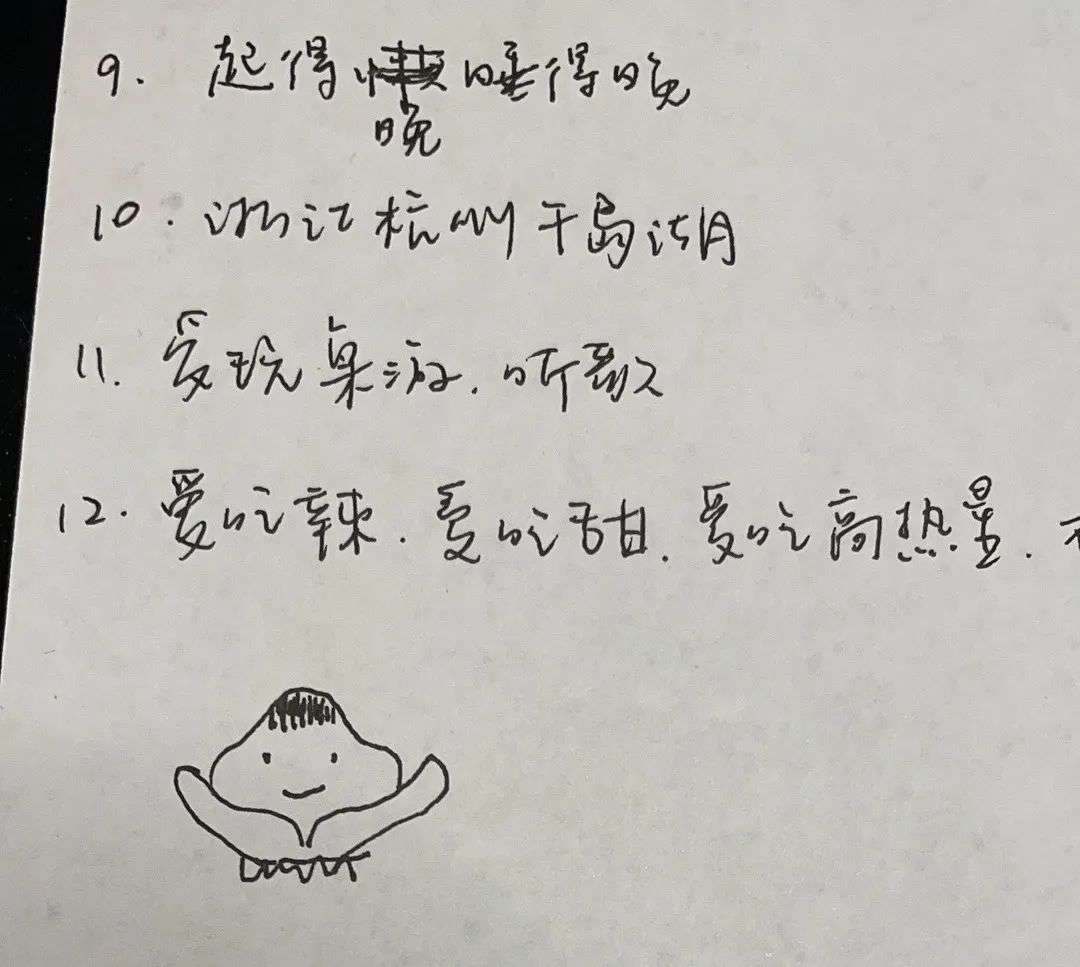 9. 起得晚睡得晚
10. 浙江杭州千岛湖
11. 爱玩桌游.听歌
12. 爱吃辣.爱吃甜.爱吃高热量.